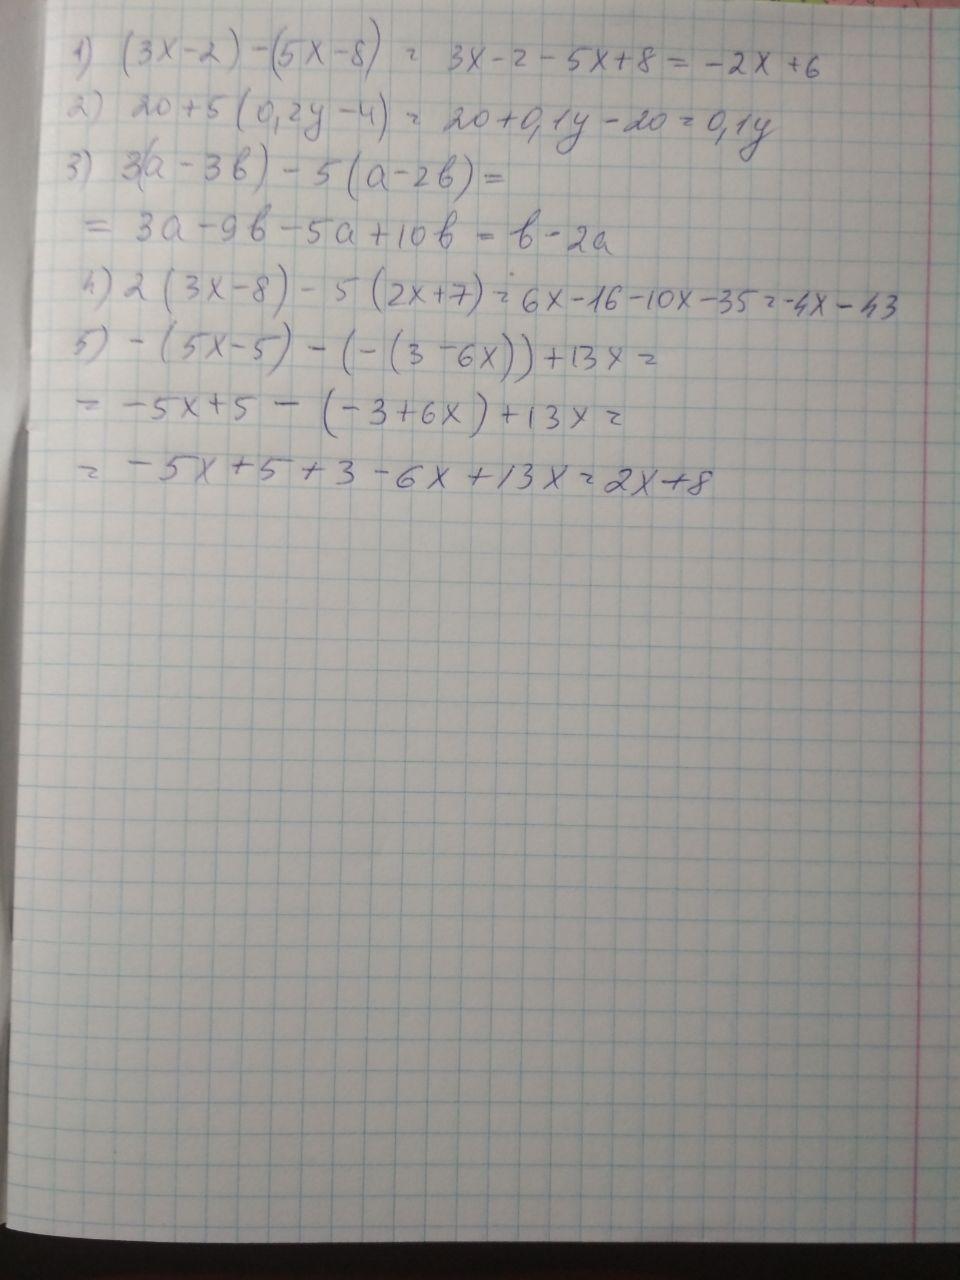 1) (3x-2)-(5x-8) = 3x-2-5x+8 = -2x+6
2) 20+5(0,2y-4) = 20+0,1y-20 = 0,1y
3) 3(a-3b)-5(a-2b) =
= 3a-9b-5a+10b = b-2a
4) 2(3x-8)-5(2x+7) = 6x-16-10x-35 = -4x-43
5) -(5x-5)-(-(3-6x))+13x =
= -5x+5-(-3+6x)+13x =
= -5x+5+3-6x+13x = 2x+8